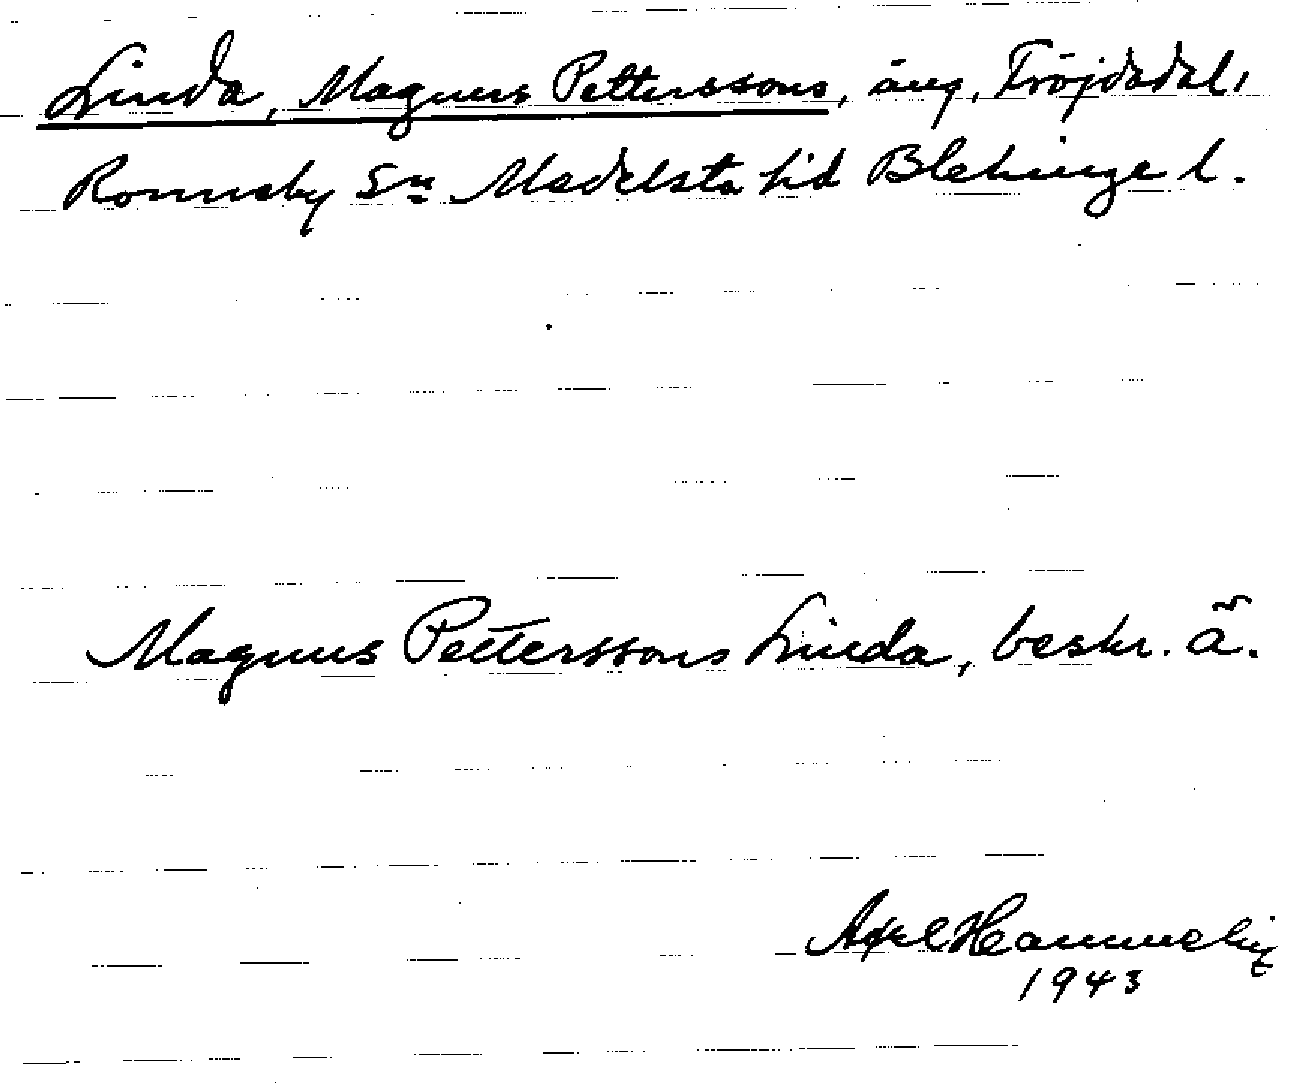 Linda, Magnus Petterssons, äng, Tröjdadal,
Ronneby Sn Medelsta hd Blekinge l.
Magnus Petterssons Linda, beskr. ä.
Axel
1943